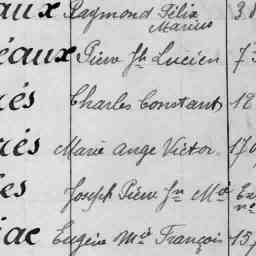 aux Raymond Félix 3
Marius
éaux Pierre Jh Lucien 73
és Charles Constant 12
és Marie Ange Victor 170
es Joseph Pierre Jn Mie Ex
iac Eugène Mie François 157